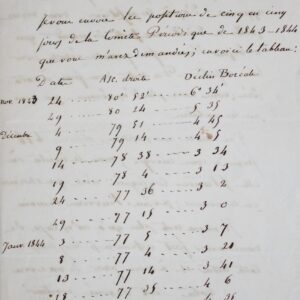 pour envoie les positions de cinq en cinq
jours de la Comète Périod. que de 1843-1844
vous m'avez demandées; en voici le tableau:
Date Asc. droite Déclin Boréale
nov. 1843 24 ..... 80° 52' ..... 6° 34'
29 ..... 80 24 ..... 5 35
Décembre 4 ..... 79 51 ..... 4 45
9 ..... 79 14 ..... 4 5
14 ..... 78 38 .... 3 34
19 ..... 78 4 ..... 3 13
24 ..... 77 36 ..... 3 2
29 ..... 77 15 ..... 3 0
Janv. 1844 3 ..... 77 5 ..... 3 7
8 ..... 77 4 ..... 3 21
13 ..... 77 14 ..... 3 41
18 ..... 77 35 ..... 4 6